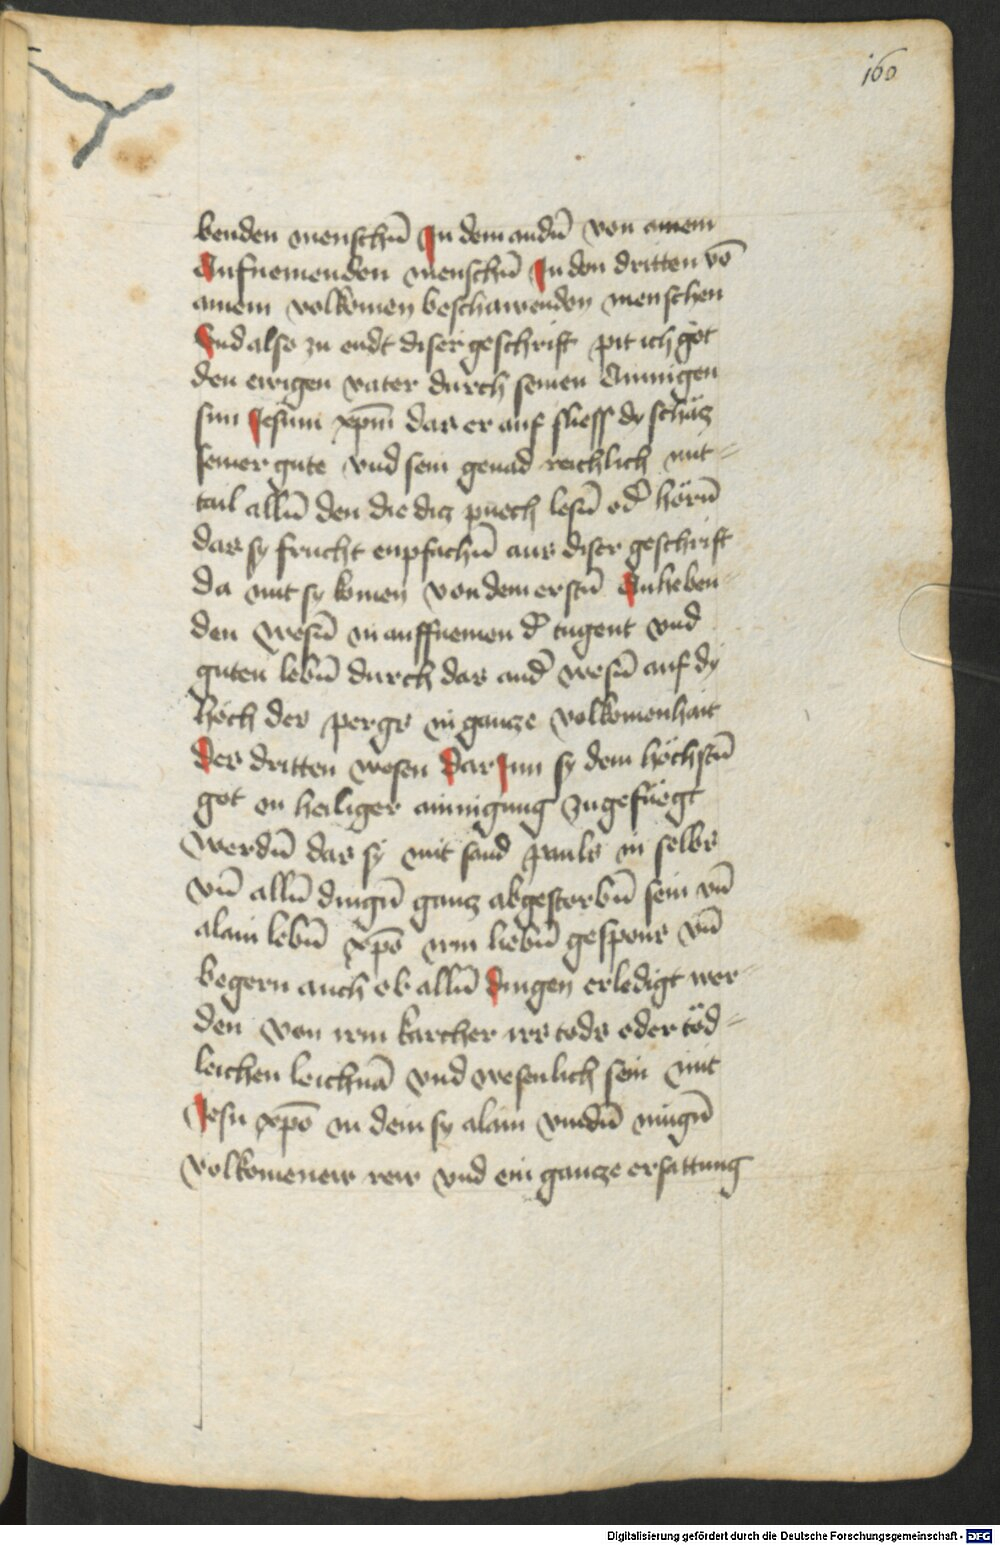 160
benden menschn̄ In dem andn̄ von ainem
Aufnemenden menschn̄ In den dritten vō
ainem volkomen beschawenden menschen
Vnd also zu endt diser geschrift pit ich got
den ewigen vater durch seinen Ainnigen
sun Jesum xpm̄ das er auf sliess dy schätz
seiner güte vnd sein genad reichlich mit-
tail alln̄ den die ditz puech lesn̄ od̄ hörn̄
das sy frucht enpfachn̄ aus diser geschrift
da mit sy komen von dem erstn̄ Anheben-
den wesn̄ in auffnemen d̄ tugent vnd
guten lebn̄ durch das and̄ wesn̄ auf dy
höch des pergs in gantze volkomenhait
Des dritten wesen Dar Inn sy dem höchstn̄
got en heiliger ainnigung zugefüegt
werdn̄ das sy mit sand pauls in selbs
vn̄ alln̄ dingn̄ gantz abgestorbn̄ sein vn̄
alain lebn̄ xpō irm liebn̄ gespons vn̄
begern auch ob alln̄ Dingen erledigt wer-
den von irm karcher irs tods oder töd-
leichen leichnā vnd wesenlich sein mit
Jesu xpō in dem sy alain vindn̄ mügn̄
volkomenew rew vnd ein gantze ersattung
Digitalisierung gefördert durch die Deutsche Forschungsgemeinschaft - DFG